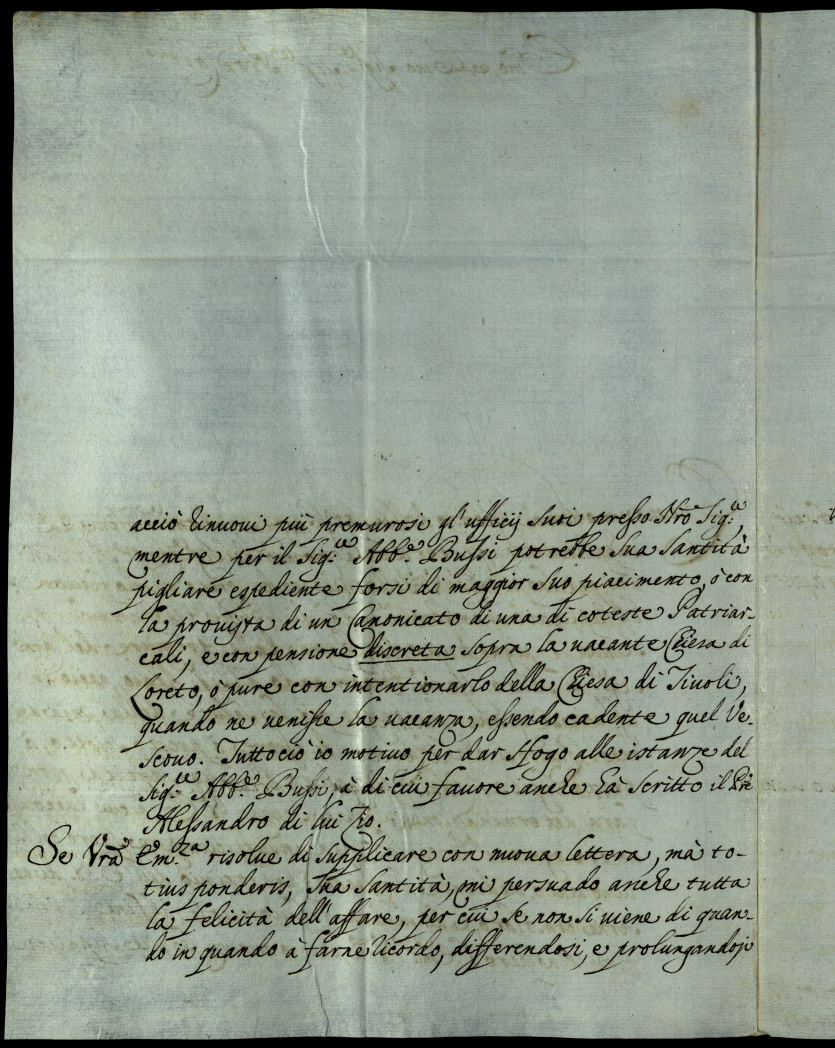 acciò rinuovi più premurosi gl'ufficij suoi presso Nro Sig.re,
mentre per il Sig.re Abb.e Bussi potrebbe Sua Santità
pigliare espediente forsi di maggior suo piacimento, ò con
la provista di un Canonicato di una di coteste Patriar-
cali, e con pensione discreta sopra la vacante Chiesa di
Loreto, ò pure con intentionarlo della Chiesa di Tivoli,
quando ne venisse la vacanza, essendo cadente quel Ve-
scovo. Tuttociò io motivo per dar sfogo alle istanze del
Sig.re Abb.e Bussi, à di cui favore anche hà scritto il Pre
Alessandro di lui Zio.
Se Vra Em.za risolve di supplicare con nuova lettera, mà to-
tius ponderis, Sua Santità, mi persuado anche tutta
la felicità dell'affare, per cui se non si viene di quan-
do in quando à farne ricordo, differendosi, e prolungandosi